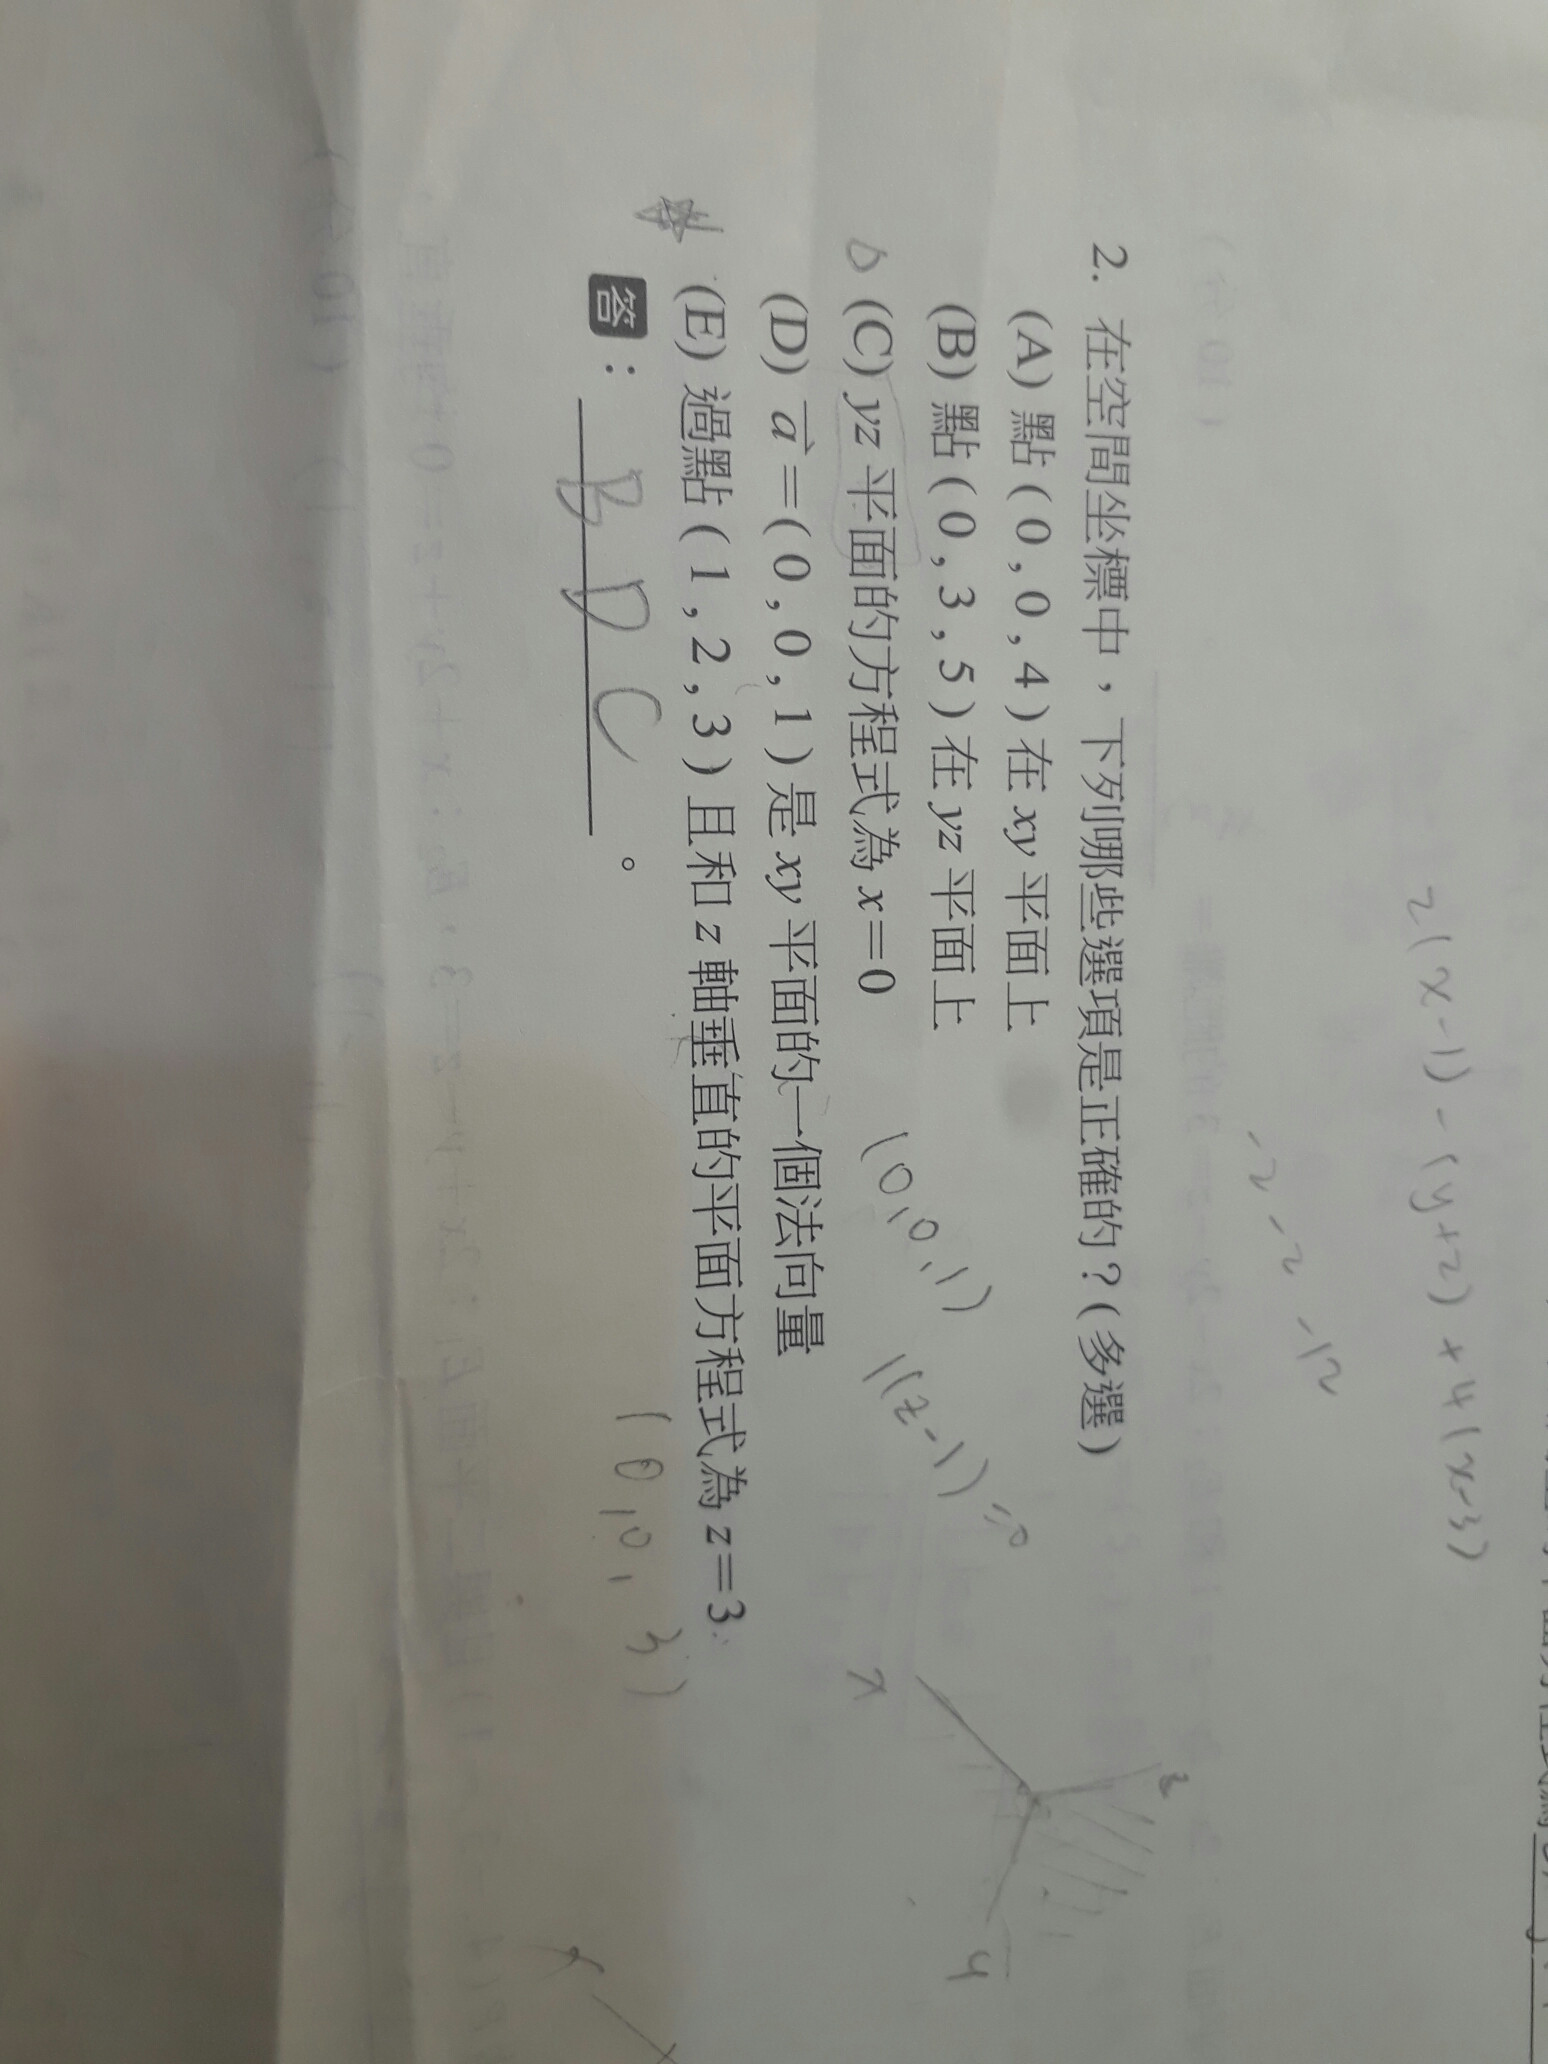 2(x-1)-(y+2)+4(x-3)
-2 -2 -12
2. 在空間坐標中，下列哪些選項是正確的？(多選)
(A) 點(0,0,4)在xy平面上
(B) 點(0,3,5)在yz平面上
(C) yz平面的方程式為x=0
(0,0,1) 1(z-1)=0
(D) a⃗=(0,0,1)是xy平面的一個法向量
(E) 過點(1,2,3)且和z軸垂直的平面方程式為z=3
(0,0,3)
答：B D C。
z
x
y